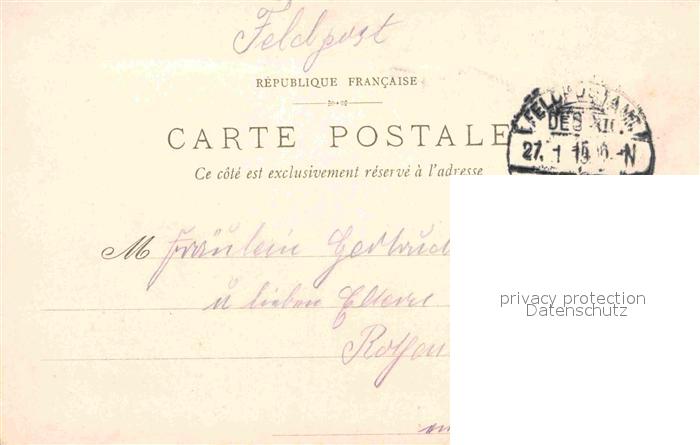 Feldpost
RÉPUBLIQUE FRANÇAISE
CARTE POSTALE
Ce côté est exclusivement réservé à l'adresse
FELDPOSTAMT
DES XII.
27. 1 15 -N
M Fräulein Gertrud
u lieben Eltern
privacy protection
Datenschutz